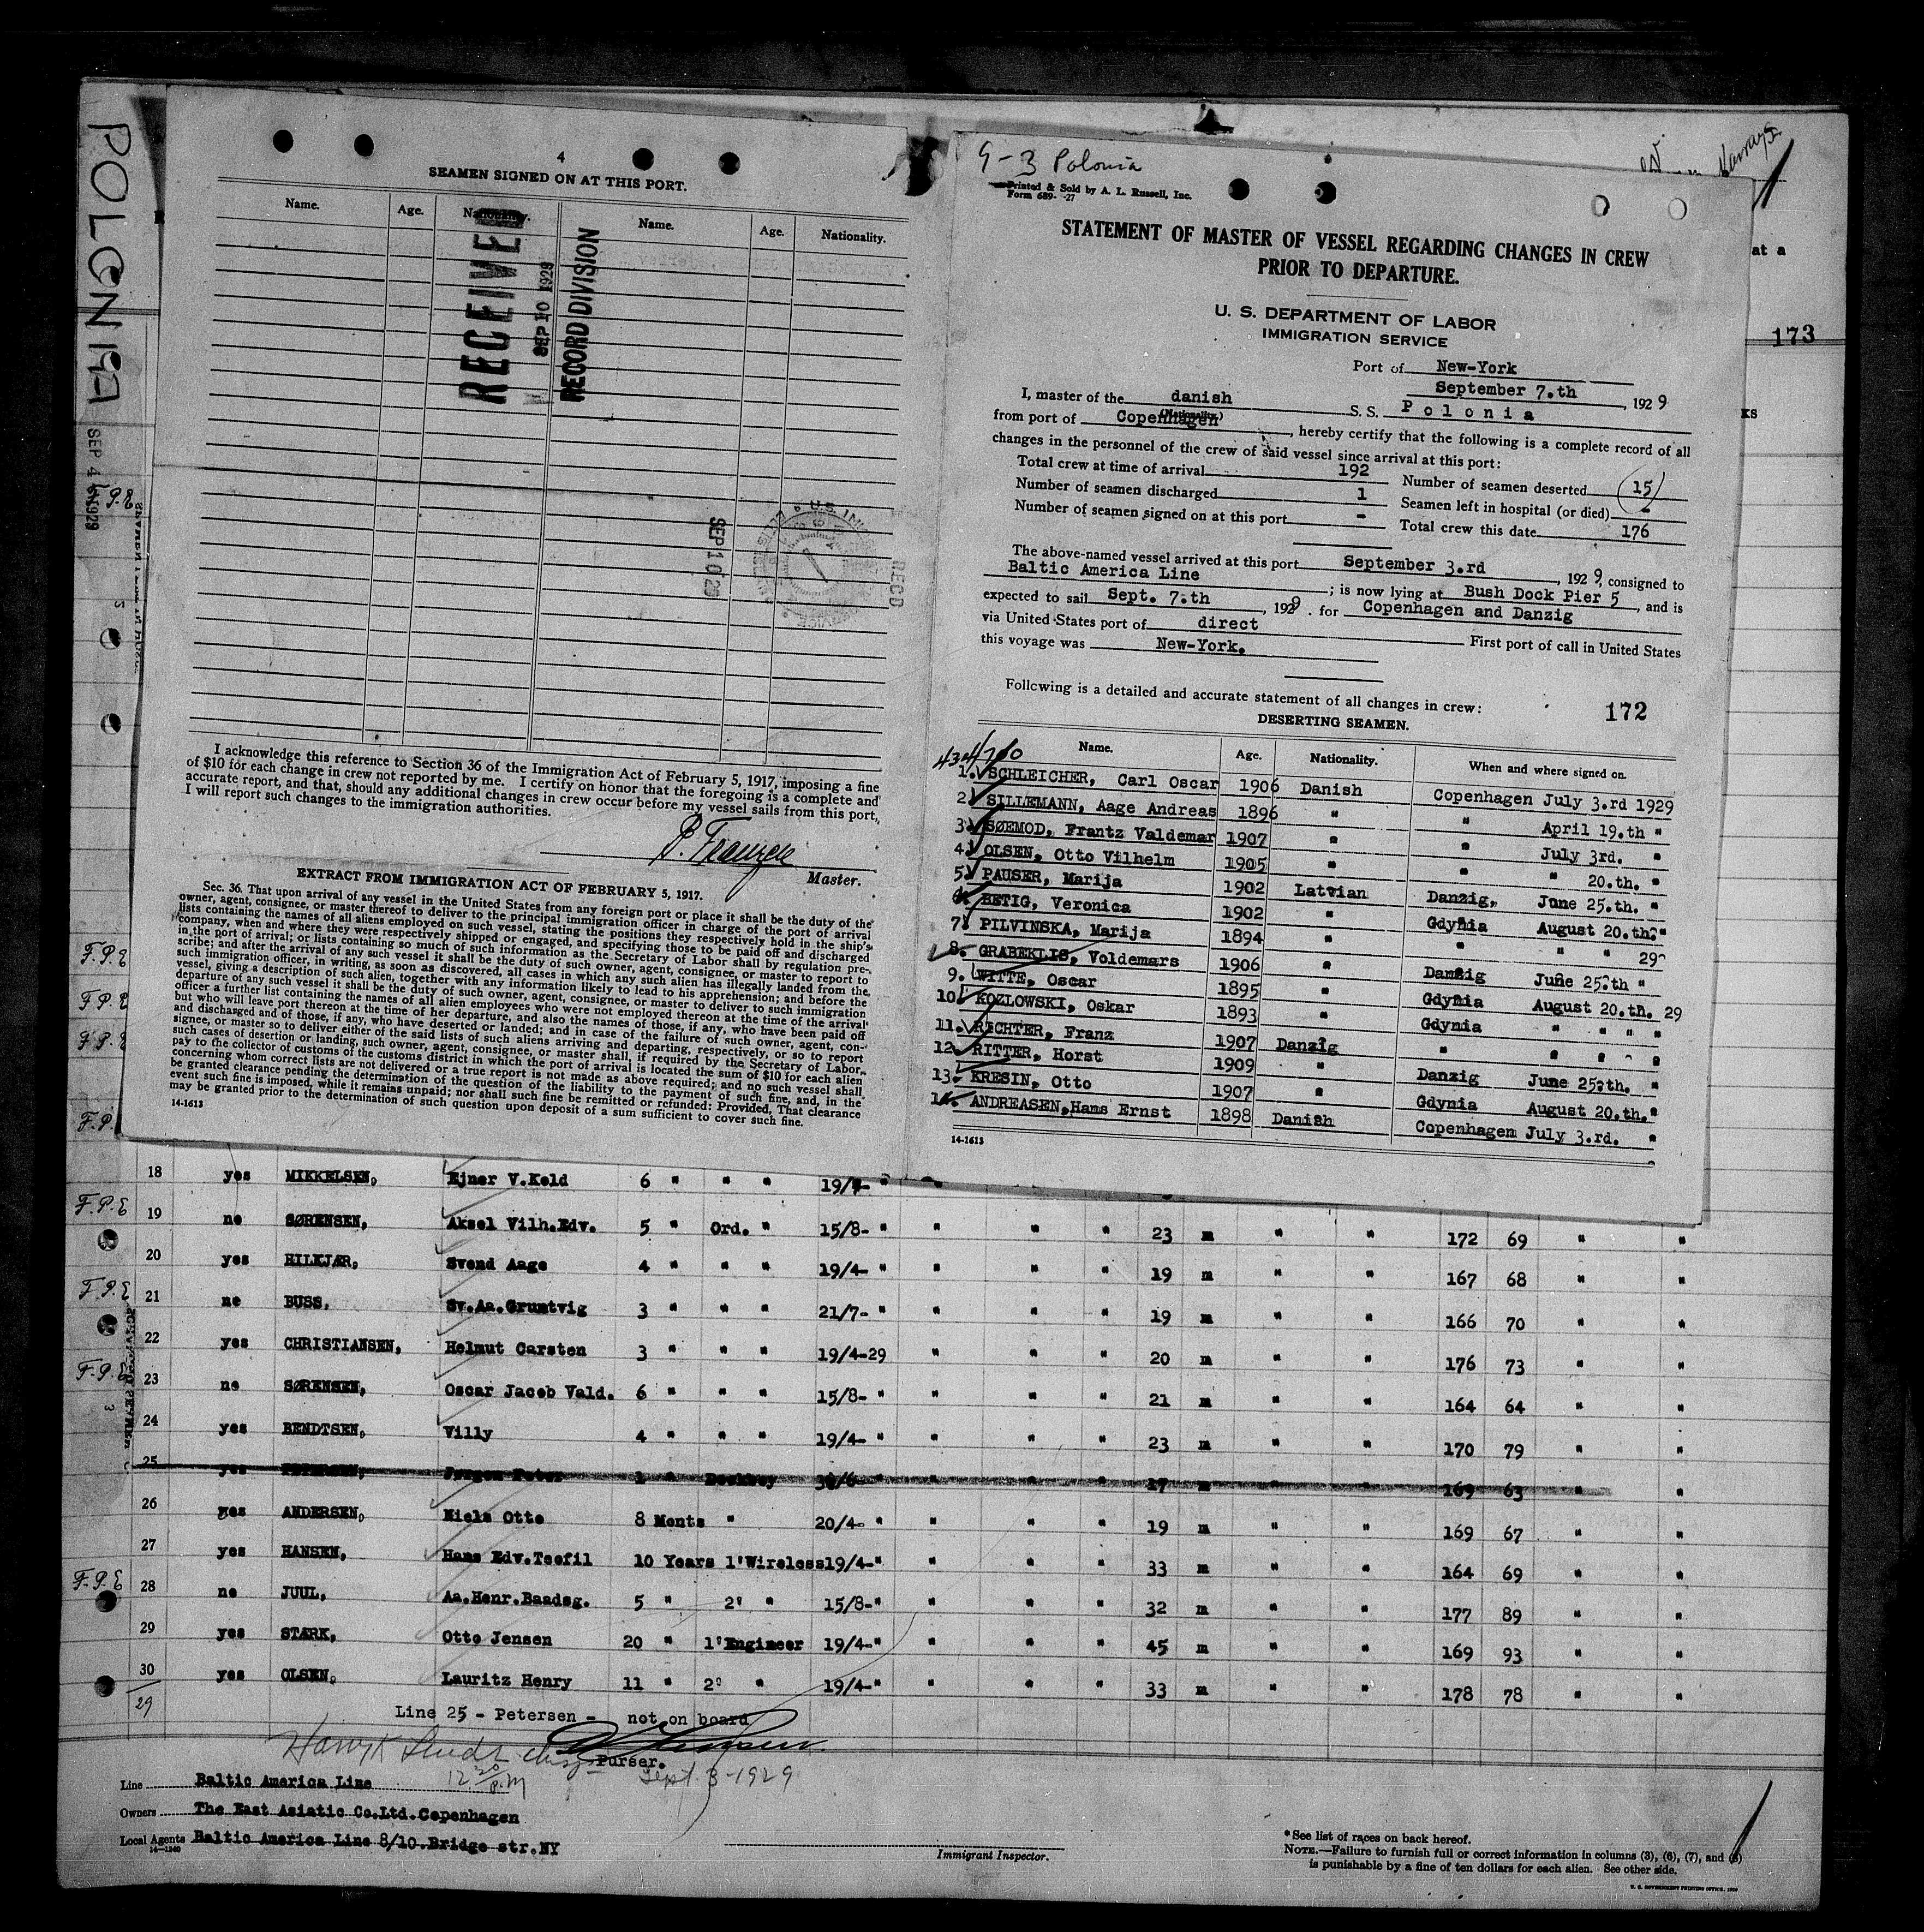 POLONIA
SEP 4 1929
4
SEAMEN SIGNED ON AT THIS PORT.
Name. Age. Nationality. Name. Age. Nationality.
RECEIVED
SEP 10 1929
RECORD DIVISION
SEP 10 29
REC'D
I acknowledge this reference to Section 36 of the Immigration Act of February 5, 1917, imposing a fine
of $10 for each change in crew not reported by me. I certify on honor that the foregoing is a complete and
accurate report, and that, should any additional changes in crew occur before my vessel sails from this port,
I will report such changes to the immigration authorities.
B. Franzen
Master.
EXTRACT FROM IMMIGRATION ACT OF FEBRUARY 5, 1917.
Sec. 36. That upon arrival of any vessel in the United States from any foreign port or place it shall be the duty of the
owner, agent, consignee, or master thereof to deliver to the principal immigration officer in charge of the port of arrival
lists containing the names of all aliens employed on such vessel, stating the positions they respectively hold in the ship's
company, when and where they were respectively shipped or engaged, and specifying those to be paid off and discharged
in the port of arrival; or lists containing so much of such information as the Secretary of Labor shall by regulation pre-
scribe; and after the arrival of any such vessel it shall be the duty of such owner, agent, consignee, or master to report to
such immigration officer, in writing, as soon as discovered, all cases in which any such alien has illegally landed from the
vessel, giving a description of such alien, together with any information likely to lead to his apprehension; and before the
departure of any such vessel it shall be the duty of such owner, agent, consignee, or master to deliver to such immigration
officer a further list containing the names of all alien employees who were not employed thereon at the time of the arrival
but who will leave port thereon at the time of her departure, and also the names of those, if any, who have been paid off
and discharged and of those, if any, who have deserted or landed; and in case of the failure of such owner, agent, con-
signee, or master so to deliver either of the said lists of such aliens arriving and departing, respectively, or so to report
such cases of desertion or landing, such owner, agent, consignee, or master shall, if required by the Secretary of Labor,
pay to the collector of customs of the customs district in which the port of arrival is located the sum of $10 for each alien
concerning whom correct lists are not delivered or a true report is not made as above required; and no such vessel shall
be granted clearance pending the determination of the question of the liability to the payment of such fine, and, in the
event such fine is imposed, while it remains unpaid; nor shall such fine be remitted or refunded: Provided, That clearance
may be granted prior to the determination of such question upon deposit of a sum sufficient to cover such fine.
14-1613
9-3 Polonia
Printed & Sold by A. L. Russell, Inc.
Form 689- -27
STATEMENT OF MASTER OF VESSEL REGARDING CHANGES IN CREW
PRIOR TO DEPARTURE.
U. S. DEPARTMENT OF LABOR
IMMIGRATION SERVICE
Port of New-York
September 7.th, 1929
I, master of the danish S. S. Polonia
(Nationality.)
from port of Copenhagen, hereby certify that the following is a complete record of all
changes in the personnel of the crew of said vessel since arrival at this port:
Total crew at time of arrival 192 Number of seamen deserted 15
Number of seamen discharged 1 Seamen left in hospital (or died) -
Number of seamen signed on at this port - Total crew this date 176
The above-named vessel arrived at this port September 3.rd, 1929, consigned to
Baltic America Line; is now lying at Bush Dock Pier 5, and is
expected to sail Sept. 7.th, 1929. for Copenhagen and Danzig
via United States port of direct First port of call in United States
this voyage was New-York.
Following is a detailed and accurate statement of all changes in crew:
172
DESERTING SEAMEN.
Name. Age. Nationality. When and where signed on.
1. SCHLEICHER, Carl Oscar 1906 Danish Copenhagen July 3.rd 1929
2. SILLEMANN, Aage Andreas 1896 " " April 19.th "
3. SØEMOD, Frantz Valdemar 1907 " " July 3rd. "
4. OLSEN, Otto Vilhelm 1905 " " " 20.th. "
5. PAUSER, Marija 1902 Latvian Danzig, June 25.th. "
6. BETIG, Veronica 1902 " Gdynia August 20.th. "
7. PILVINSKA, Marija 1894 " " " " 29
8. GRABEKLIS, Voldemars 1906 " Danzig June 25.th "
9. WITTE, Oscar 1895 " Gdynia August 20.th. 29
10. KOZLOWSKI, Oskar 1893 " Gdynia " " " "
11. RICHTER, Franz 1907 Danzig " " " " "
12. RITTER, Horst 1909 " Danzig June 25.th. "
13. KRESIN, Otto 1907 " Gdynia August 20.th. "
14. ANDREASEN, Hans Ernst 1898 Danish Copenhagen July 3.rd. "
14-1613
at a
173
18 yes MIKKELSEN, Ejner V.Keld 6 " " " 19/4- "
F.P.E
19 no SØRENSEN, Aksel Vilh.Edv. 5 " Ord. " 15/8- " " " " 23 m " " 172 69 " "
20 yes HILKJÆR, Svend Aage 4 " " " 19/4- " " " " 19 m " " 167 68 " "
F.P.E
21 no BUSS, Sv.Aa.Gruntvig 3 " " " 21/7- " " " " 19 m " " 166 70 " "
22 yes CHRISTIANSEN, Helmut Carsten 3 " " " 19/4-29 " " " 20 m " " 176 73 " "
F.P.E
23 no SØRENSEN, Oscar Jacob Vald. 6 " " " 15/8- " " " " 21 m " " 164 64 " "
24 yes BENDTSEN, Villy 4 " " " 19/4- " " " " 23 m " " 170 79 " "
25 yes PETERSEN, Jørgen Peter 1 " Deckboy " " " " 17 m " " 169 63 " "
26 yes ANDERSEN, Niels Otto 8 Monts " 20/4- " " " " 19 m " " 169 67 " "
27 yes HANSEN, Hans Edv.Teofil 10 Years 1'Wireless 19/4- " " " " 33 m " " 164 69 " "
F.P.E
28 no JUUL, Aa.Henr.Baadsg. 5 " 2' " 15/8- " " " " 32 m " " 177 89 " "
29 yes STARK, Otto Jensen 20 " 1'Engineer 19/4- " " " " 45 m " " 169 93 " "
30 yes OLSEN, Lauritz Henry 11 " 2' " 19/4- " " " " 33 m " " 178 78 " "
29
Line 25 - Petersen - not on board
Purser.
12 20 P.M Sept. 3-1929
Line Baltic America Line
Owners The East Asiatic Co.Ltd.Copenhagen
Local Agents Baltic America Line 8/10.Bridge str.NY
14-1240
Immigrant Inspector.
*See list of races on back hereof.
NOTE.—Failure to furnish full or correct information in columns (3), (6), (7), and (8)
is punishable by a fine of ten dollars for each alien. See other side.